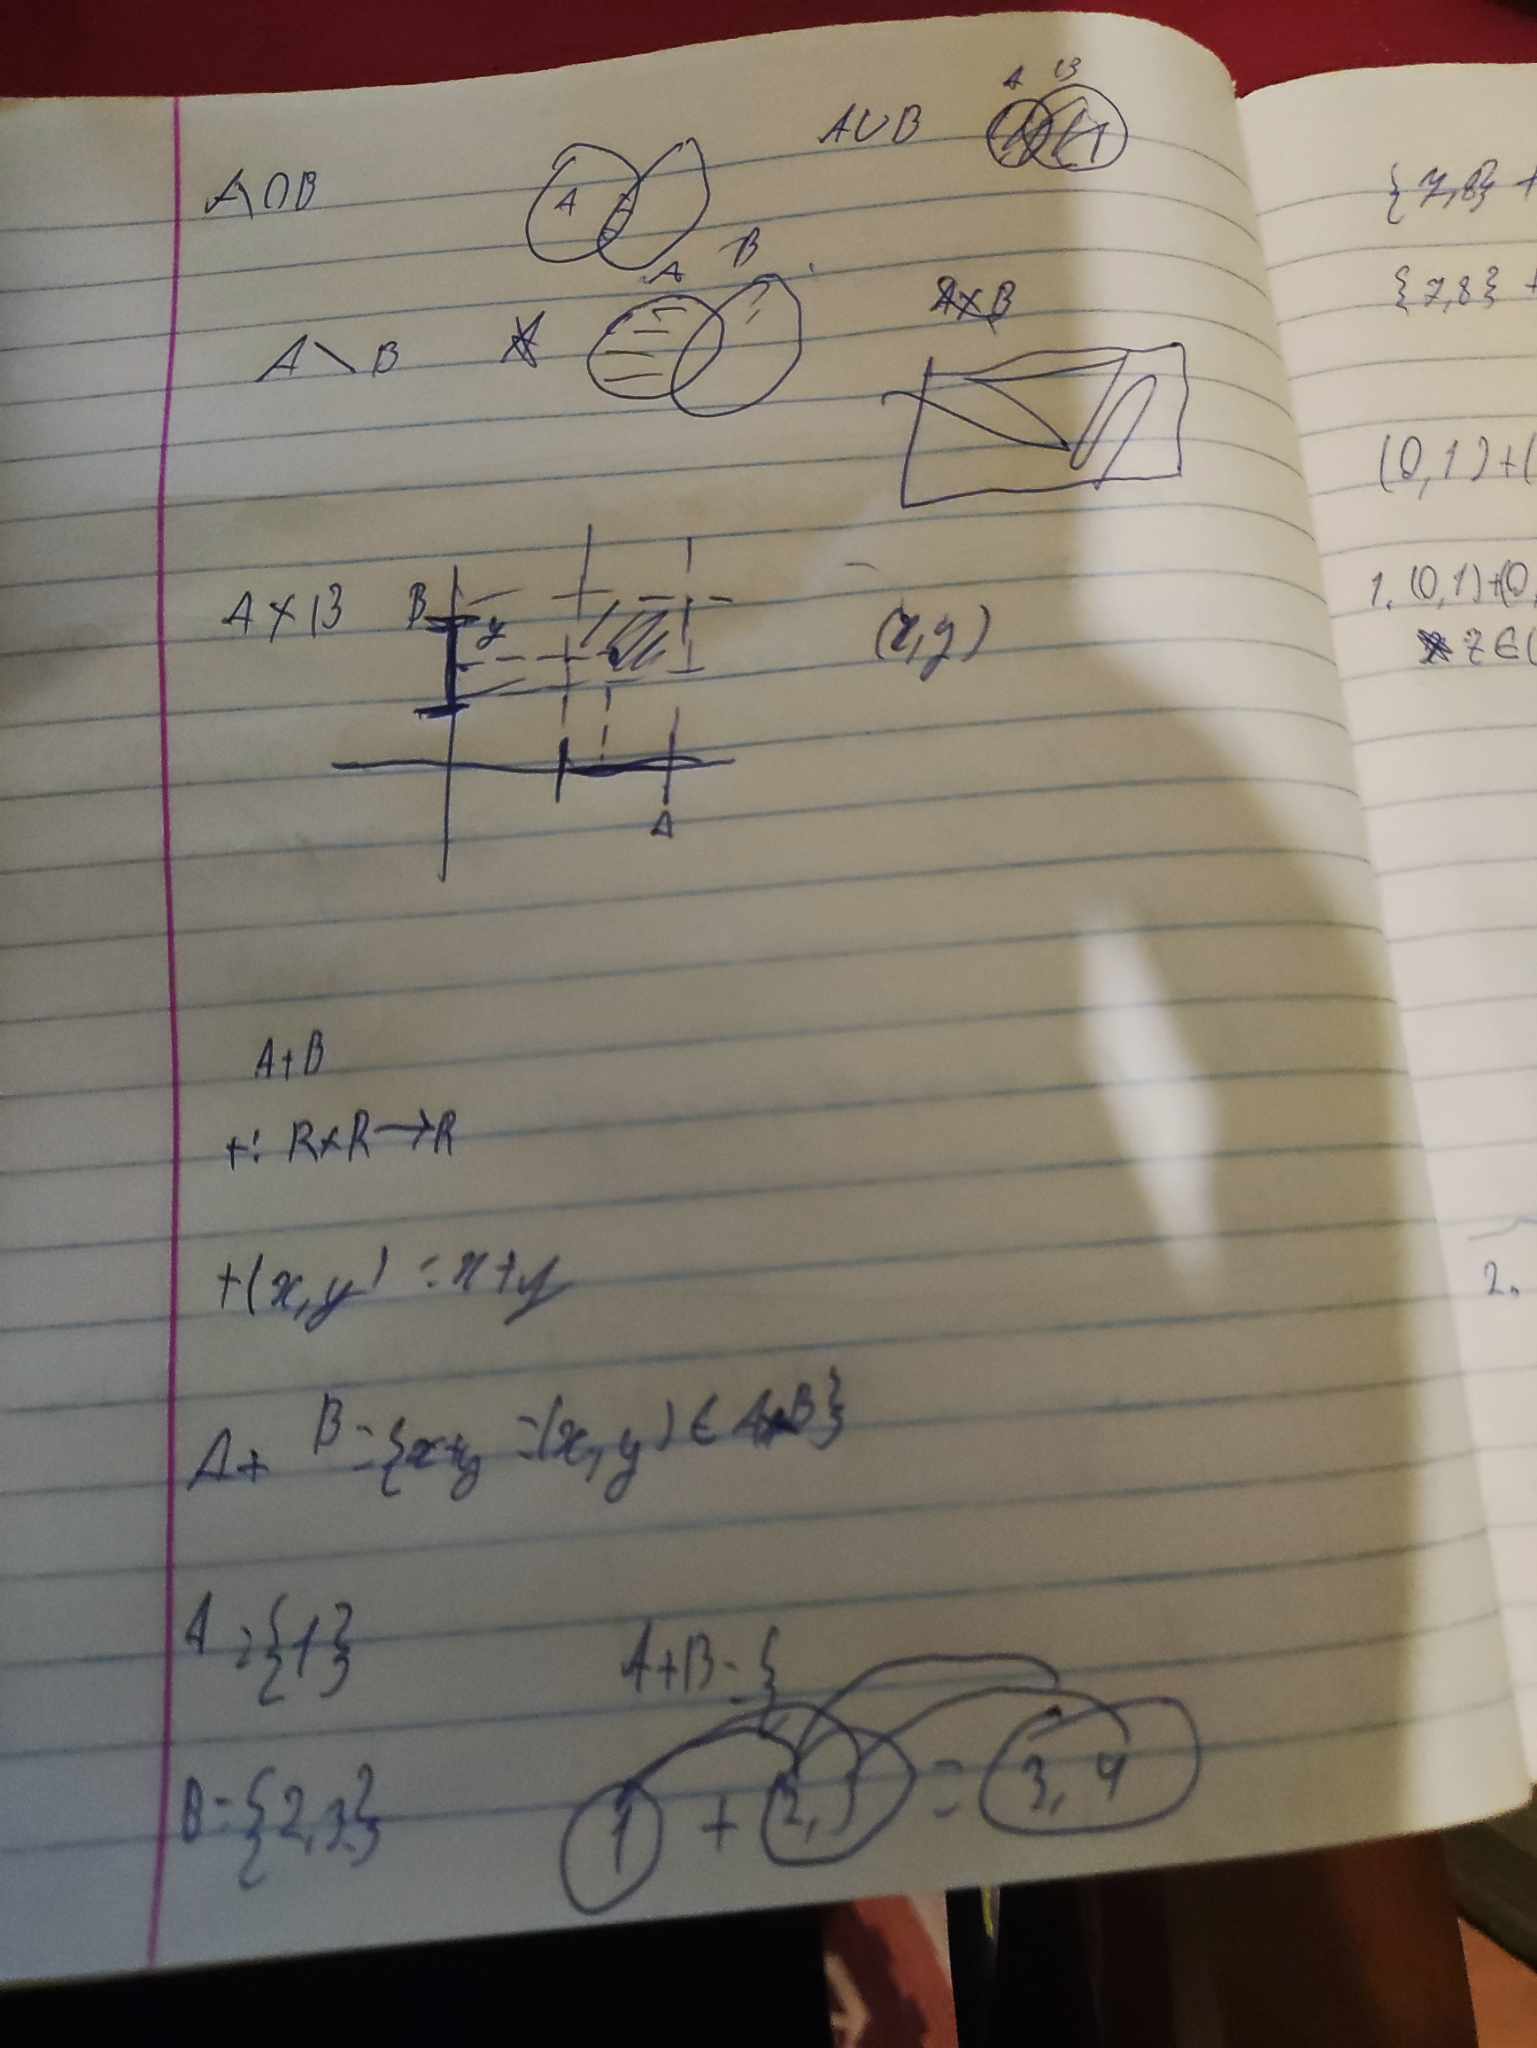 A∩B
A
A∪B
A B
A \ B
A B
A×B
A×B
B
y
A
(x,y)
A+B
+: R×R→R
+(x,y) = x+y
A+ B={x+y =(x,y) ∈ A×B}
A ={1}
A+B={
B={2,3}
1 + 2,3 = 3,4
{7,8} +
{7,8} +
(0,1)+(
1. (0,1)+(0,
z∈(
2.